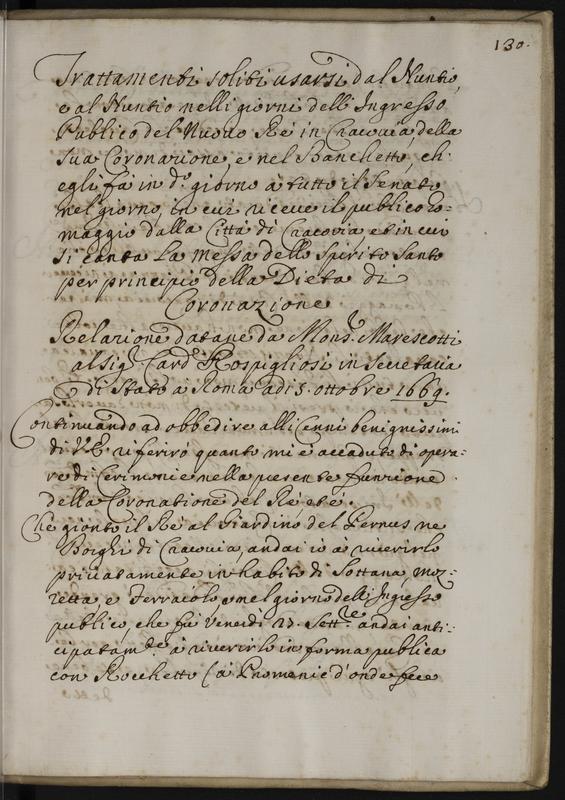 130.
Trattamenti soliti usarsi dal Nuntio,
e al Nuntio nelli giorni delli Ingresso
Publico del Nuovo Rè in Cracovia, della
sua Coronazione, e nel Banchetto, ch'
egli fà in d.o giorno à tutto il Senato
nel giorno, in cui riceve il publico Ho=
maggio dalla Città di Cracovia et in cui
si canta la Messa dello Spirito Santo
per principio della Dieta di
Coronazione
Relazione datane da Mons.r Marescotti
al Sig.r Card.l Rospigliosi in Secretaria
di Stato à Roma adi 5. ottobre 1669.
Continuando ad obbedire alli Cenni benignissimi
di V.E. riferirò quanto mi è accaduto di opera=
re di Cerimonie nella presente funzione
della Coronatione del Rè et è.
Che gionto il Rè al Giardino del Pernus ne
Borghi di Cracovia, andai io à riverirlo
privatamente in habito di Sottana, Moz=
zetta, e Ferraiolo, e nel giorno delli Ingresso
publico, che fù Venerdì 27. Sett.re andai anti=
cipatam.te à riverirlo in forma publica
con Rocchetto (à Promenic d'onde fece